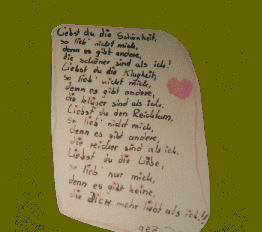 Liebst du die Schönheit,
so lieb' nicht mich,
denn es gibt andere,
die schöner sind als ich!
Liebst du die Klugheit,
so lieb' nicht mich,
denn es gibt andere,
die klüger sind als ich.
Liebst du den Reichtum,
so lieb' nicht mich,
denn es gibt andere,
die reicher sind als ich.
Liebst du die Liebe,
so lieb' nur mich,
denn es gibt keine,
die DICH mehr liebt als ich!!